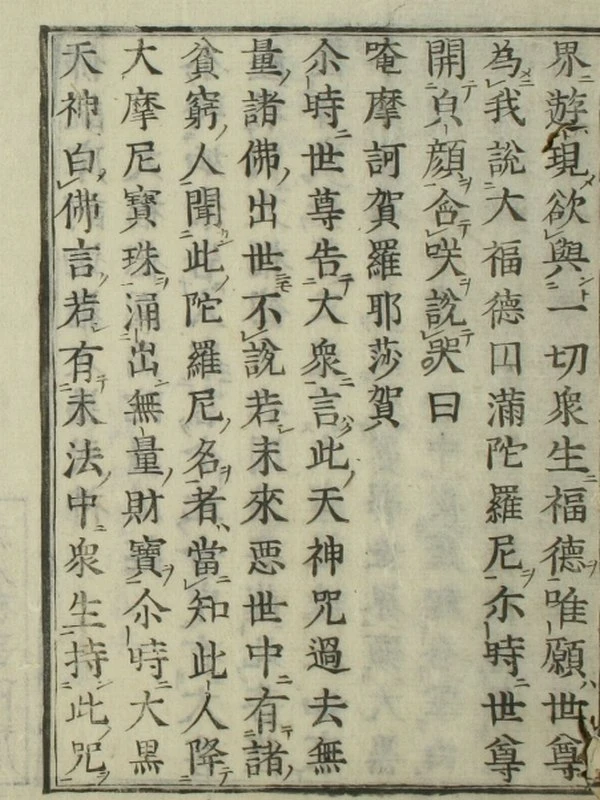 界遊現欲與一切衆生福德唯願世尊
為我說大福德円滿陀羅尼尒時世尊
開㒵顔含咲說咒曰
唵摩訶賀羅耶莎賀
尒時世尊告大衆言此天神咒過去無
量諸佛出世不說若未來悪世中有諸
貧窮人聞此陀羅尼名者當知此人降
大摩尼寶珠涌出無量財寶尒時大黒
天神白佛言若有末法中衆生持此咒